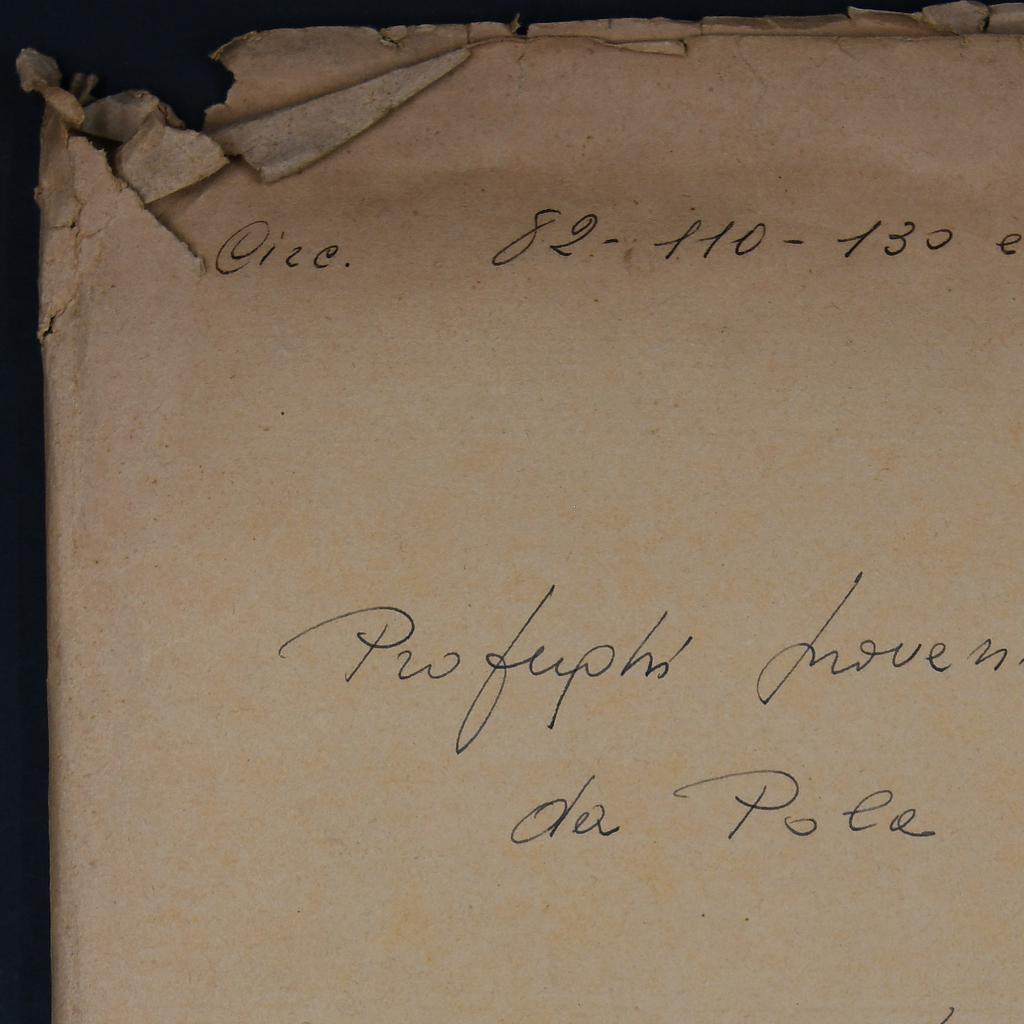 Circ. 82 - 110 - 130 e
Profughi proven
da Pola